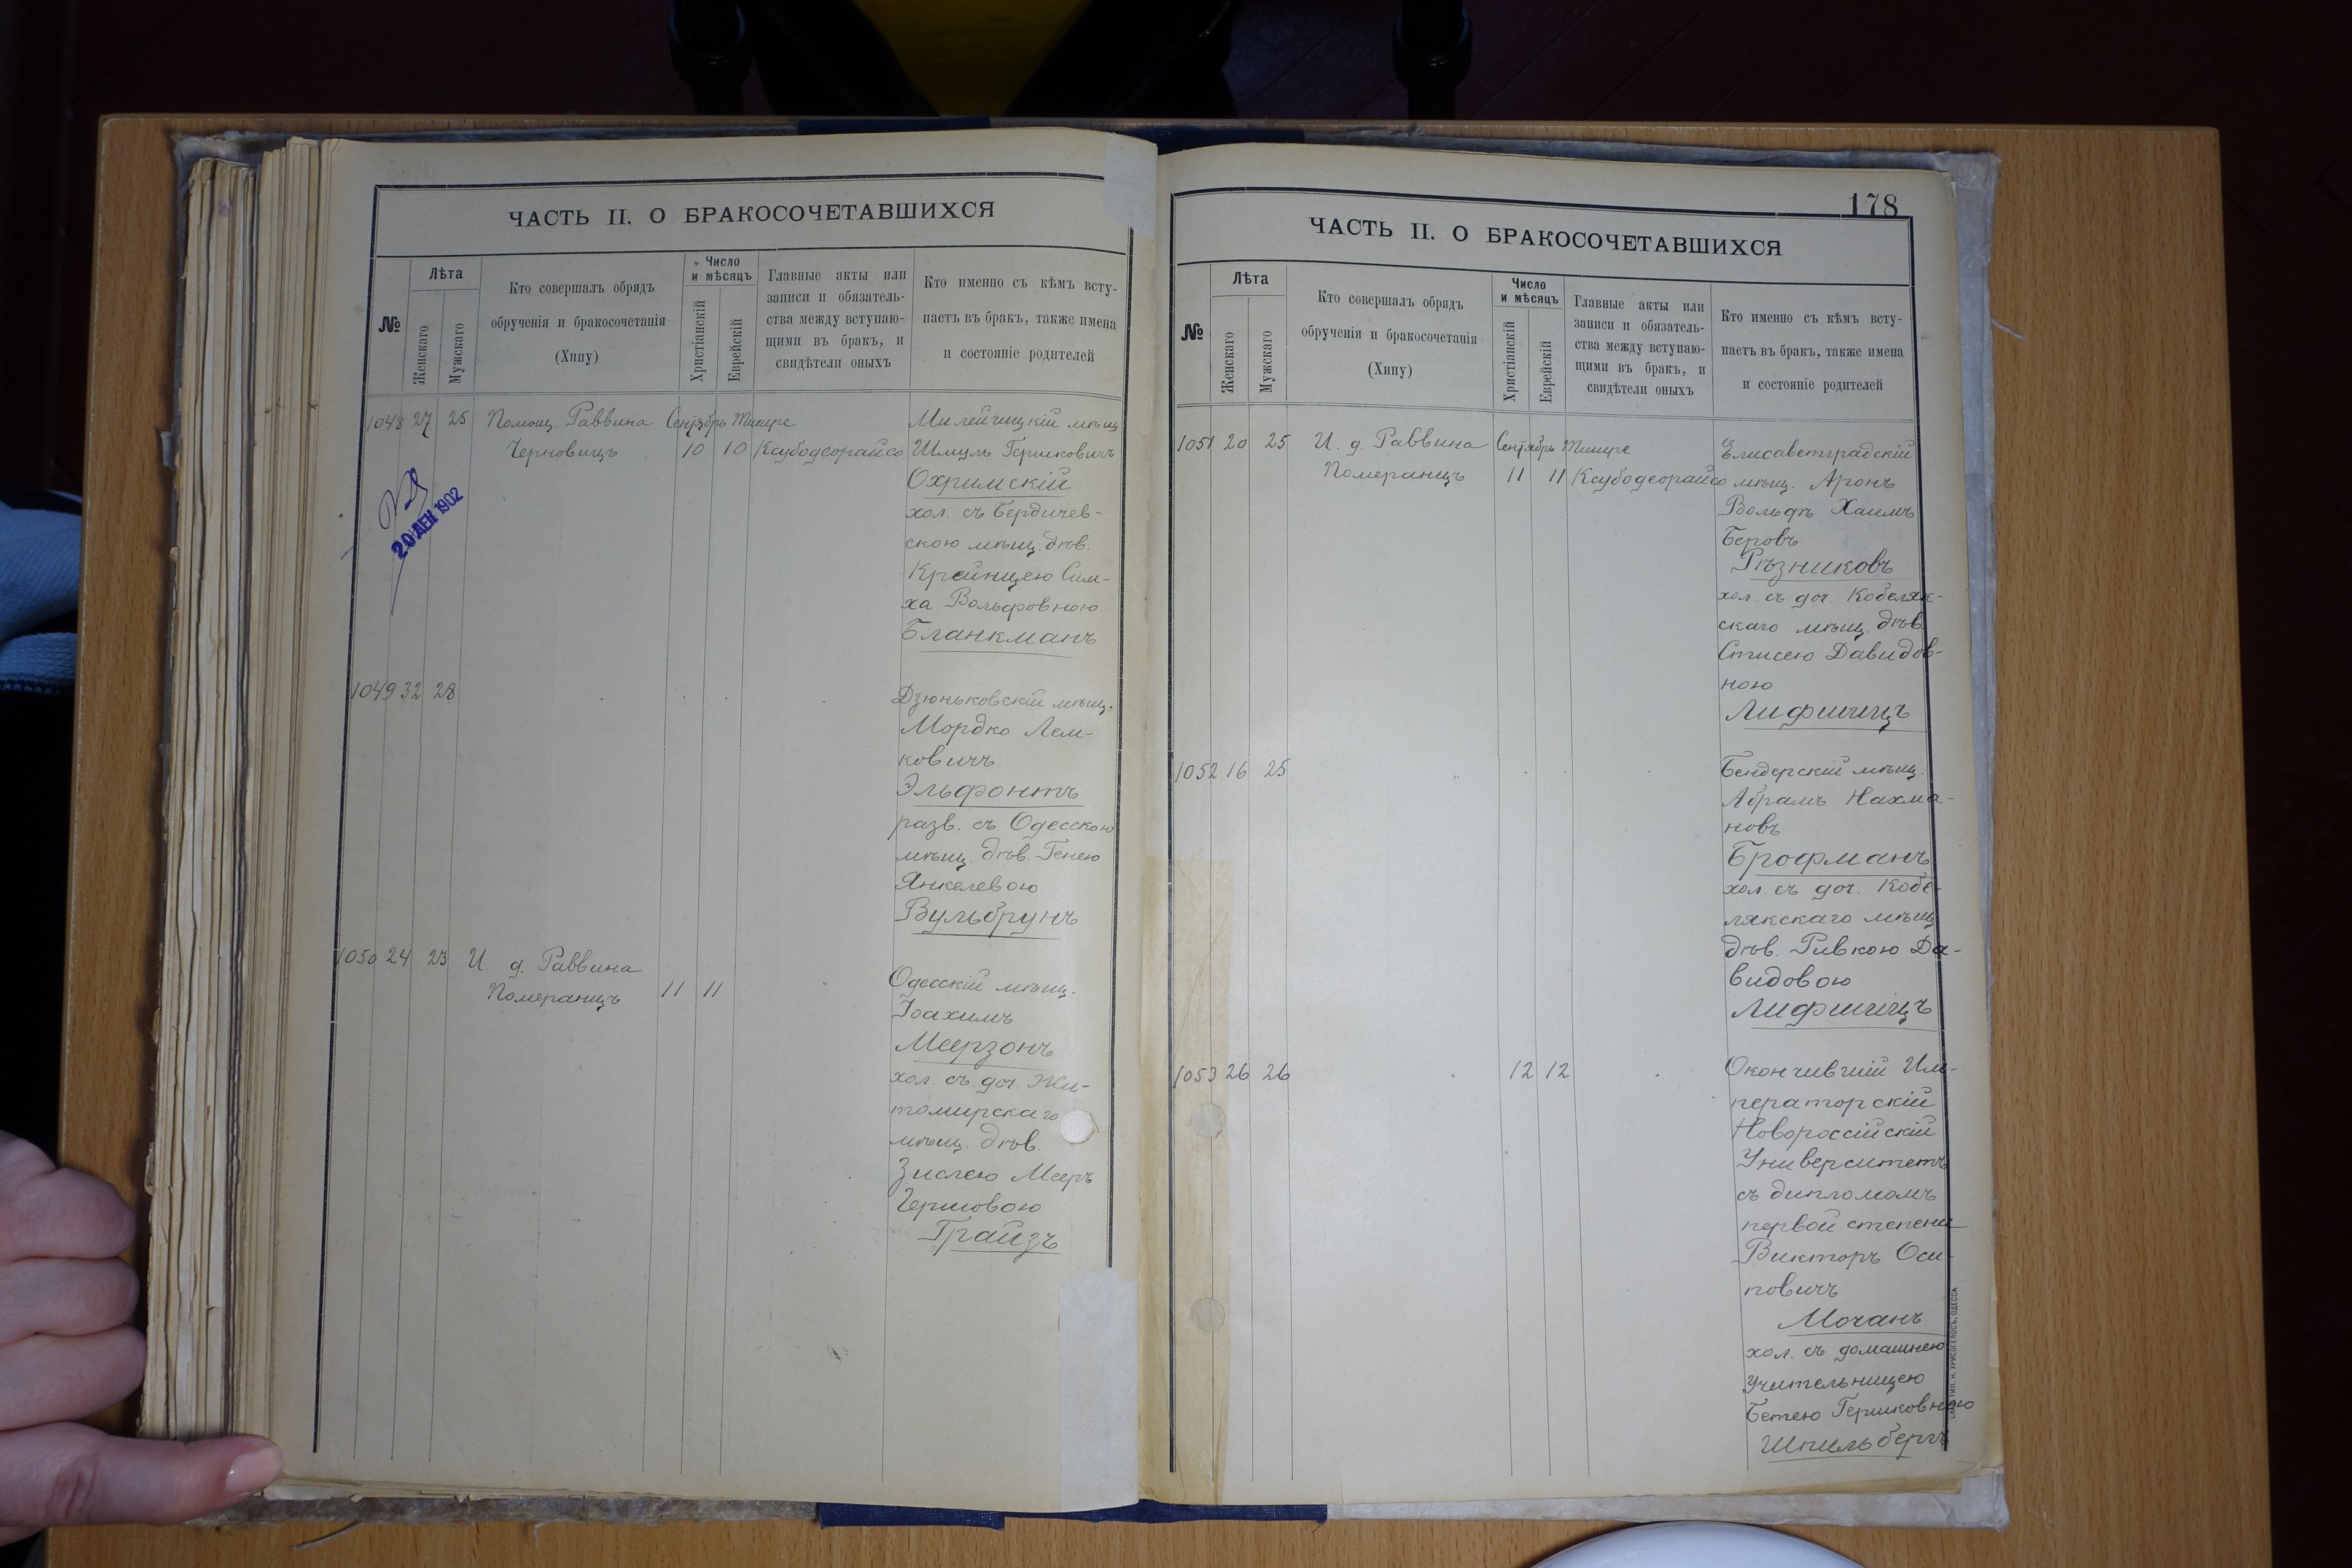 ЧАСТЬ II. О БРАКОСОЧЕТАВШИХСЯ
№
Лѣта
Женскаго
Мужскаго
Кто совершалъ обрядъ
обрученія и бракосочетанія
(Хипу)
Число
и мѣсяцъ
Христіанскій
Еврейскій
Главные акты или
записи и обязатель-
ства между вступаю-
щими въ бракъ, и
свидѣтели оныхъ
Кто именно съ кѣмъ всту-
паетъ въ бракъ, также имена
и состояніе родителей
1048 27 25 Помощ. Раввина Сентябрь Тишре Милейчицкій мѣщ
Черновицъ 10 10 Ксубодеорайсо Шмуль Гершковичъ
Охримскій
хол. съ Бердичев-
скою мѣщ. дѣв.
Крейнцею Сим-
ха Вольфовною
Бланкманъ
20 ДЕК 1902
1049 32 28 Дзюньковскій мѣщ.
Мордко Лем-
ковичъ
Эльфонтъ
разв. съ Одесскою
мѣщ. дѣв. Генею
Янкелевою
Вульбрунъ
1050 24 23 И. д. Раввина
Померанцъ 11 11 Одесскій мѣщ.
Іоахимъ
Меерзонъ
хол. съ доч. Жи-
томирскаго
мѣщ. дѣв.
Зислею Мееръ
Гершовою
Грайзъ
178
ЧАСТЬ II. О БРАКОСОЧЕТАВШИХСЯ
№
Лѣта
Женскаго
Мужскаго
Кто совершалъ обрядъ
обрученія и бракосочетанія
(Хипу)
Число
и мѣсяцъ
Христіанскій
Еврейскій
Главные акты или
записи и обязатель-
ства между вступаю-
щими въ бракъ, и
свидѣтели оныхъ
Кто именно съ кѣмъ всту-
паетъ въ бракъ, также имена
и состояніе родителей
1051 20 25 И. д. Раввина Сентябрь Тишре Елисаветградскій
Померанцъ 11 11 Ксубодеорайсо мѣщ. Аронъ
Вольфъ Хаимъ
Беровъ
Рѣзниковъ
хол. съ доч. Кобеляк-
скаго мѣщ. дѣв.
Стисею Давидов-
ною
Лифшицъ
1052 16 25 Бендерскій мѣщ.
Абрамъ Нахма-
новъ
Брофманъ
хол. съ доч. Кобе-
лякскаго мѣщ
дѣв. Ривкою Да-
видовою
Лифшицъ
1053 26 26 12 12 Окончившій Им-
ператорскій
Новороссійскій
Университетъ
съ дипломомъ
первой степени
Викторъ Оси-
повичъ
Мочанъ
хол. съ домашнею
учительницею
Бетею Гершковною
Шпильбергъ
ТИП. Н. ХРИСОГЕЛОСЪ, ОДЕССА